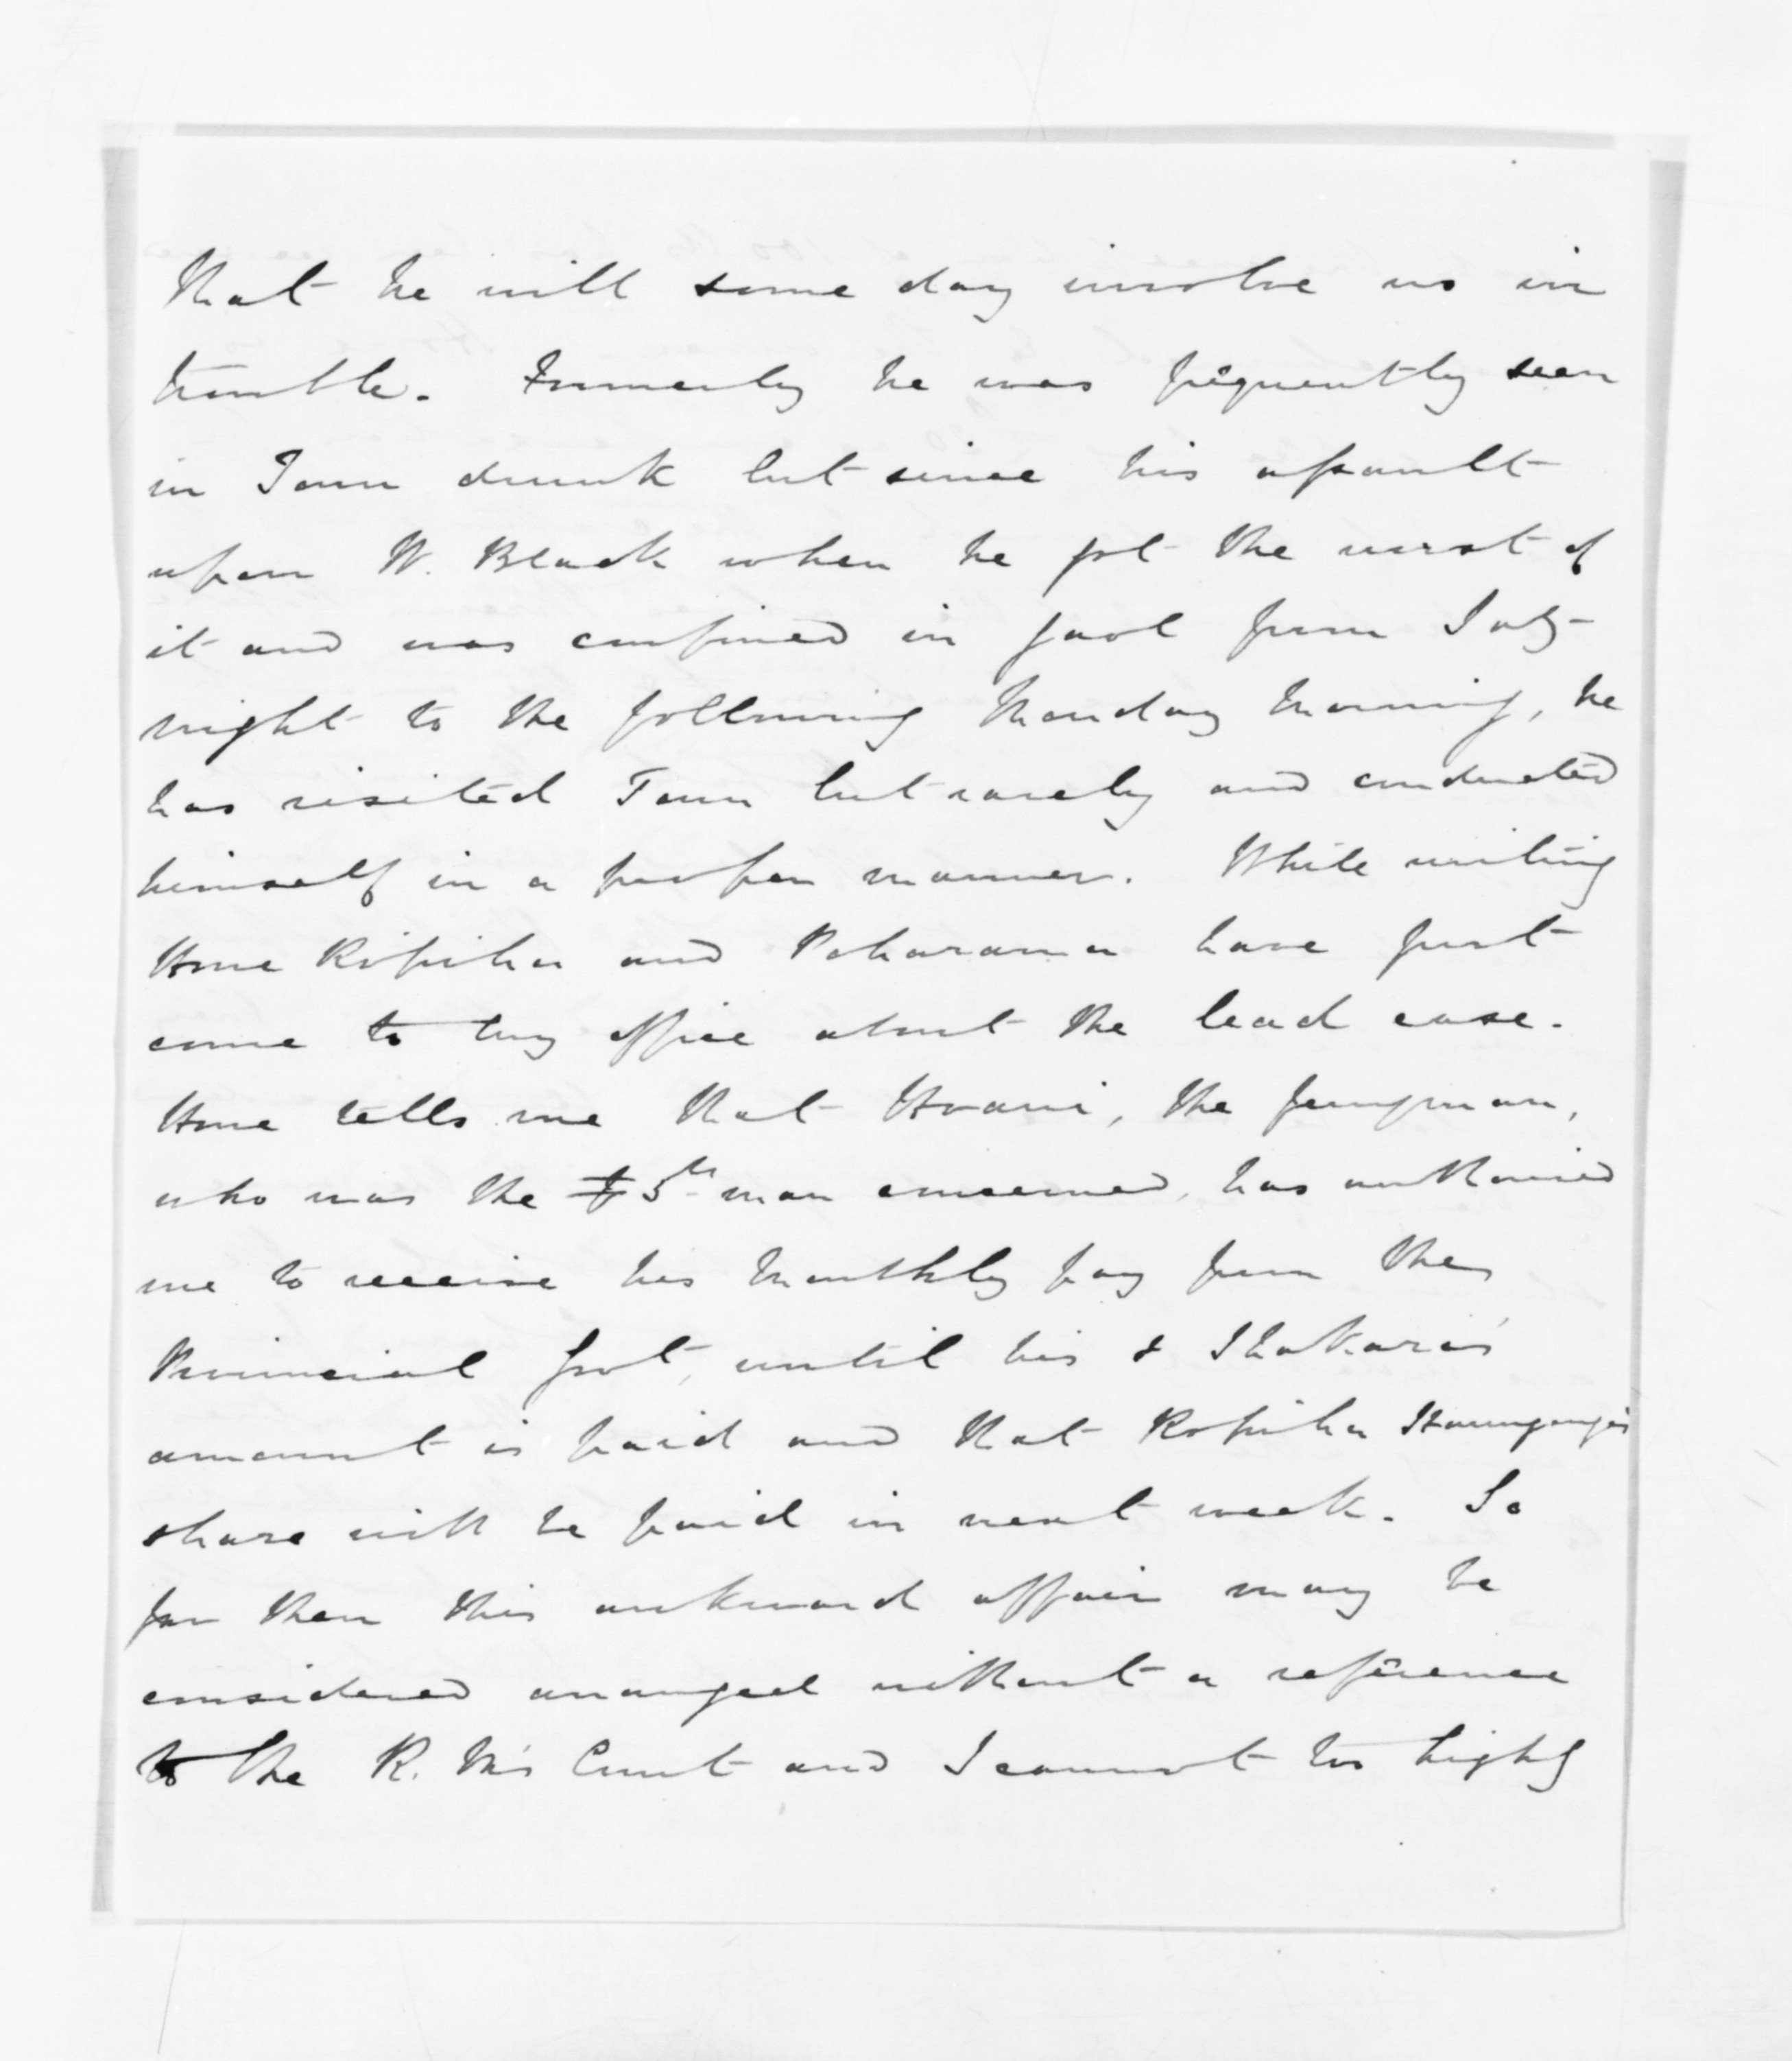 that he will some day involve us in
trouble. Formerly he was frequently seen
in Town drunk but since his assault
upon W. Black when he got the worst of
it and was confined in gaol from Saty
night to the following Monday morning, he
has visited Town but rarely and conducted
himself in a proper manner. While writing
Hone Ropiha and Poharama have just
come to my office about the lead case.
Hone tells me that Hoani, the ferryman,
who was the 5th man concerned, has authorised
me to receive his monthly pay from the
Provincial Govt, until his & Ihakara's
amount is paid and that Ropiha
share will be paid in next week. So
far then this awkward affair may be
considered arranged without a reference
to the R. M's Court and I cannot too highly